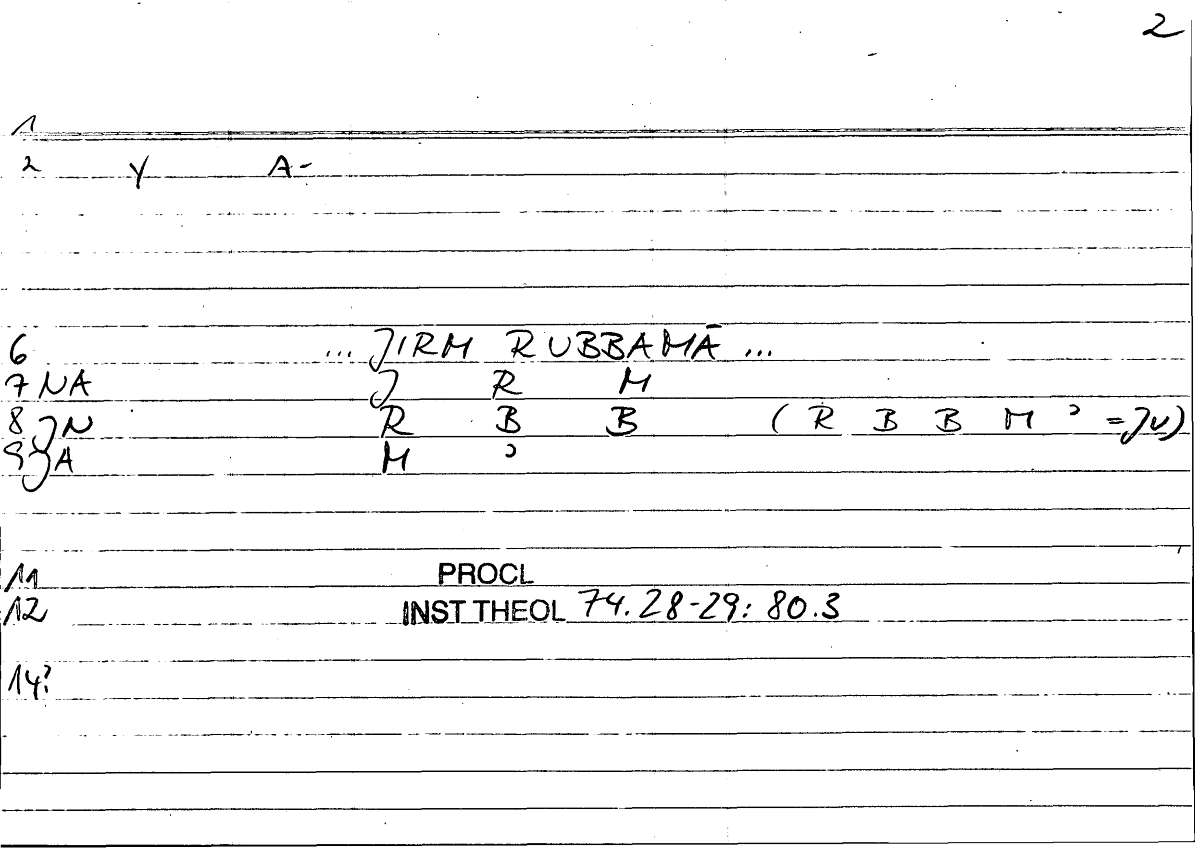 2
1
2 Y A-
6 ... JIRM RUBBAMĀ ...
7 NA J R M
8 JN R B B ( R B B M ʾ = JU)
9 JA M ʾ
11 PROCL
12 INST THEOL 74.28-29: 80.3
14?